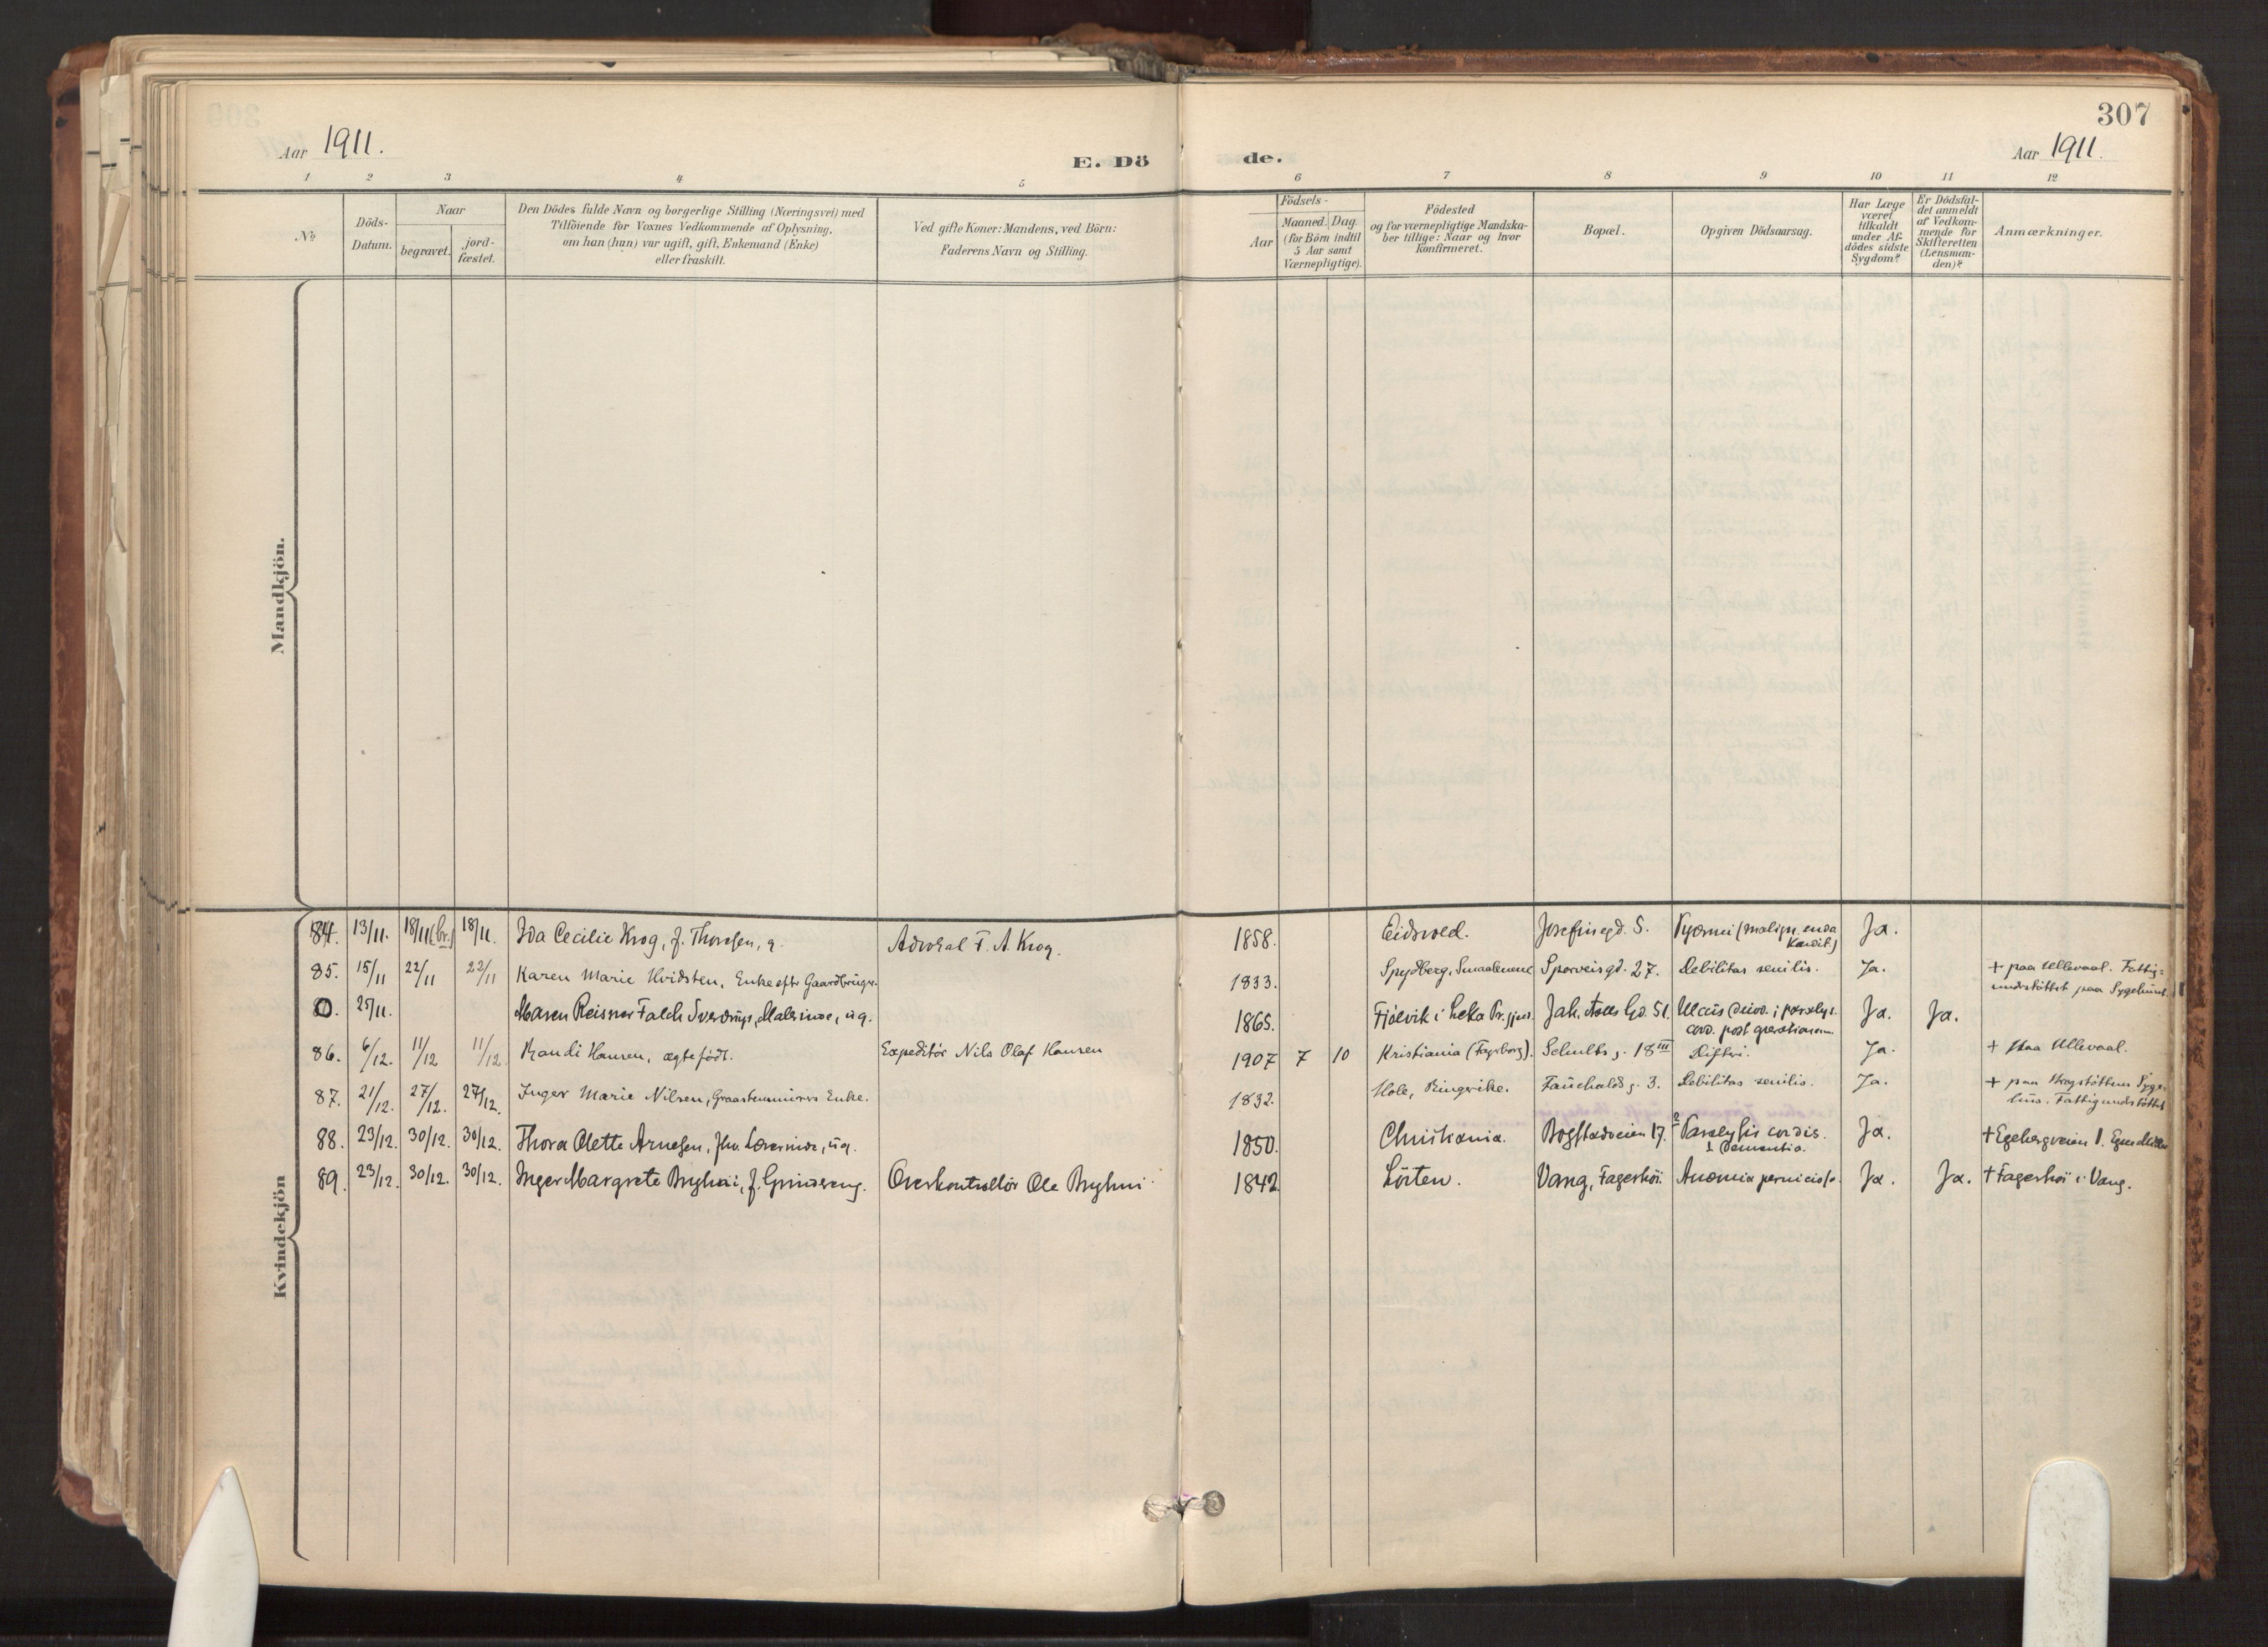 307
Aar 1911.
E. Dö de.
Aar 1911.
1 2 3 4 5 6 7 8 9 10 11 12
No
Döds-
Datum.
Naar
begravet.
jord-
fæstet.
Den Dödes fulde Navn og borgerlige Stilling (Næringsvei) med
Tilföiende for Voxnes Vedkommende af Oplysning,
om han (hun) var ugift, gift, Enkemand (Enke)
eller fraskilt.
Ved gifte Koner: Mandens, ved Börn:
Faderens Navn og Stilling.
Födsels-
Aar
Maaned. Dag.
(for Börn indtil
5 Aar samt
Værnepligtige).
Födested
og for værnepligtige Mandska-
ber tillige: Naar og hvor
konfirmeret.
Bopæl.
Opgiven Dödsaarsag.
Har Læge
været
tilkaldt
under Af-
dödes sidste
Sygdom?
Er Dödsfal-
det anmeldt
af Vedkom-
mende for
Skifteretten
(Lensman-
den)?
Anmærkninger.
Mandkjön.
Kvindekjön
84. 13/11. 18/11 (br.) 18/11. Ida Cecilie Krog, f. Thoresen, g. Advokat F. A Krog. 1858. Eidsvold. Josefinegd. 5. Pyæmi (malign. endo
kardit) Ja.
85. 15/11 22/11 22/11 Karen Marie Hvidsten, Enke efter Gaardbruger. 1833. Spydberg, Smaalenene Sporveisgd. 27. Debilitas senilis. Ja. + paa Ullevaal. Fattig=
understöttet paa Sygehuset.
0. 25/11. Maren Reisner Falch Sverdrup, Malerinde, ug. 1865. Fjelvik i Leka Pr.gjeld. Jak. Aalls Gd. 51. Ulcus duod. i paralys.
cord. post operationem Ja. Ja.
86. 6/12. 11/12 11/12 Randi Hansen, ægtefödt. Expeditör Nils Olaf Hansen 1907 7 10 Kristiania (Fagerborg). Schults g. 18 III Difteri. Ja. + paa Ullevaal.
87. 21/12. 27/12. 27/12. Inger Marie Nilsen, Graastensminers Enke. 1832. Hole, Ringerike. Fauchalds g. 3. Debilitas senilis. Ja. + paa Krogstöttens Syge-
hus. Fattigunderstöttet
88. 23/12. 30/12. 30/12. Thora Olette Arnesen, fhv. Lærerinde, ug. 1850. Christiania. Bogstadveien 17. 2 Paralysis cordis.
1 Dementia. Ja. + Egebergveien 1.
89. 23/12. 30/12. 30/12. Inger Margrete Bryhni, f. Grindereng. Overkontrollör Ole Bryhni 1842 Löiten. Vang, Fagerhöi. Anæmia perniciosa. Ja. Ja. + Fagerhöi i Vang.